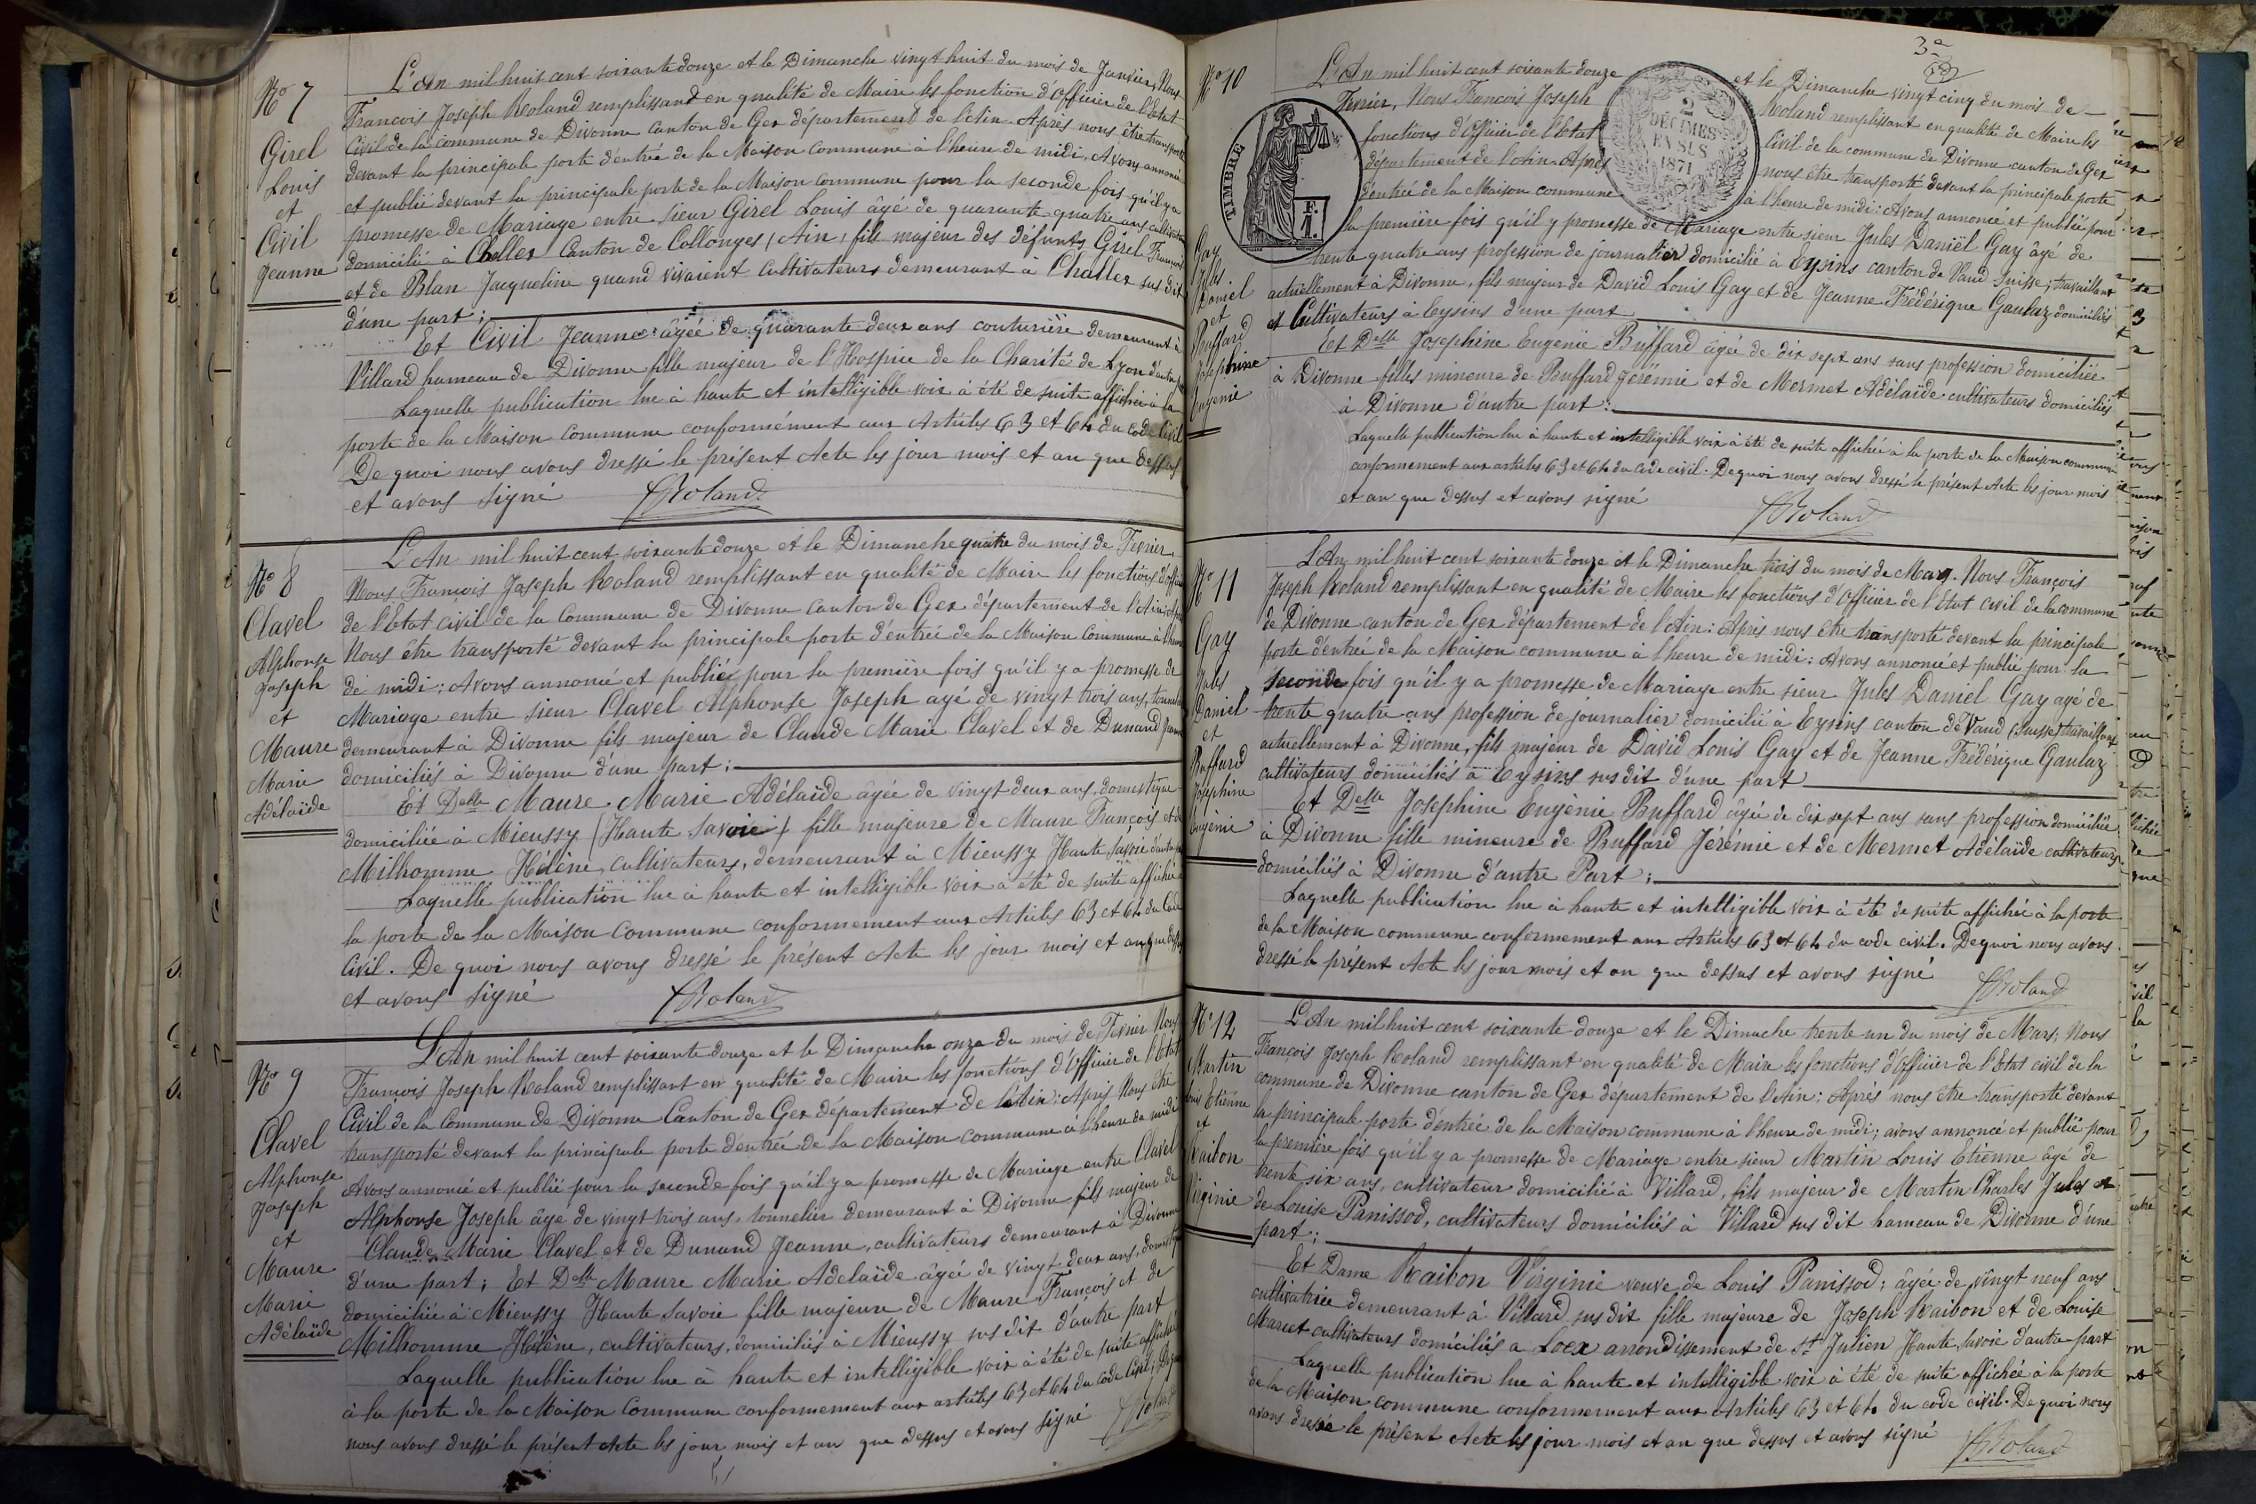 No 7
Girel
Louis
et
Civil
Jeanne
L'An mil huit cent soixante douze et le Dimanche vingt huit du mois de Janvier, Nous
François Joseph Roland remplissand en qualité de Maire les fonction d'Officier de l'Etat
Civil de la commune de Divonne canton de Gex département de l'Ain. Après nous être transporté
devant la principale porte d'entrée de la Maison commune à l'heure de midi. Avons annoncé
et publié devant la principale porte de la Maison commune pour la seconde fois qu'il y a
promesse de Mariage entre sieur Girel Louis âgé de quarante quatre ans cultivateur
domicilié à Challex Canton de Collonges (Ain) fils majeur des défunts Girel François
et de Blan Jacqueline quand vivaient cultivateurs demeurant à Challex sus dit
d'une part;
Et Civil Jeanne âgée de quarante deux ans couturière demeurant à
Villard hameau de Divonne fille majeur de l'Hospice de la Charité de Lyon d'autre
Laquelle publication lue à haute et intelligible voix à été de suite affichée à la
porte de la Maison commune conformément aux Articles 63 et 64 du code Civil
De quoi nous avons dressé le présent Acte les jour mois et an que dessus
et avons signé Roland
No 8
Clavel
Alphonse
Joseph
et
Maure
Marie
Adélaïde
L'An mil huit cent soixante douze et le Dimanche quatre du mois de Fevrier
Nous François Joseph Roland remplissant en qualité de Maire les fonctions d'officier
de l'Etat civil de la commune de Divonne canton de Gex département de l'Ain: Après
Nous être transporté devant la principale porte d'entrée de la Maison Commune à l'heure
de midi: Avons annoncé et publié pour la première fois qu'il y a promesse de
Mariage entre sieur Clavel Alphonse Joseph agé de vingt trois ans, tonnelier
demeurant à Divonne fils majeur de Claude Marie Clavel et de Dunand Jeanne
domiciliés à Divonne d'une part;
Et Delle Maure Marie Adélaïde âgée de vingt deux ans, domestique
domiciliée à Mieussy (Haute Savoie) fille majeure de Maure François et de
Milhomme Hélène, cultivateurs, demeurant à Mieussy Haute Savoie d'autre
Laquelle publication lue à haute et intelligible voix à été de suite affichée à
la porte de la Maison Commune conformement aux Articles 63 et 64 du Code
Civil. De quoi nous avons dressé le présent Acte les jour mois et an que dessus
et avons signé Roland
No 9
Clavel
Alphonse
Joseph
et
Maure
Marie
Adélaïde
L'An mil huit cent soixante douze et le Dimanche onze du mois de Fevrier Nous
François Joseph Roland remplissant en qualité de Maire les fonctions d'Officier de l'Etat
Civil de la Commune de Divonne Canton de Gex département de l'Ain: Après Nous être
transporté devant la principale porte d'entrée de la Maison commune à l'heure de midi
Avons annoncé et publié pour la seconde fois qu'il y a promesse de Mariage entre Clavel
Alphonse Joseph âge de vingt trois ans, tonnelier demeurant à Divonne fils majeur de
Claude Marie Clavel et de Dunand Jeanne, cultivateurs demeurant à Divonne
d'une part; Et Delle Maure Marie Adelaïde âgée de vingt deux ans, domestique
domiciliée à Mieussy Haute Savoie fille majeure de Maure François et de
Milhomme Hélène, cultivateurs, domiciliés à Mieussy sus dit d'autre part
Laquelle publication lue à haute et intelligible voix à été de suite affichée
à la porte de la Maison Commune conformement aux articles 63 et 64 du Code Civil; De quoi
nous avons dressé le présent Acte les jour mois et an que dessus et avons signé Roland
3e
No 10
TIMBRE
F.
1.
2
DÉCIMES
EN SUS
1871
Gay
Jules
Daniel
et
Buffard
Josephine
Eugénie
L'An mil huit cent soixante douze et le Dimanche vingt cinq du mois de
Fevrier, Nous François Joseph Roland remplissant en qualité de Maire les
fonctions d'Officier de l'Etat Civil de la commune de Divonne canton de Gex
département de l'Ain. Après nous être transporté devant la principale porte
d'entrée de la Maison commune à l'heure de midi: Avons annoncé et publié pour
la première fois qu'il y promesse de Mariage entre sieur Jules Daniël Gay âgé de
trente quatre ans profession de journalier domicilié à Eysins canton de Vaud Suisse, travaillant
actuellement à Divonne, fils majeur de David Louis Gay et de Jeanne Frédérique Gaulaz domiciliés
et Cultivateurs à Eysins d'une part
Et Delle Josephine Eugénie Buffard âgée de dix sept ans sans profession domiciliée
à Divonne filles mineure de Buffard Jérémie et de Mermet Adélaïde cultivateurs domiciliés
à Divonne d'autre part:
Laquelle publication lue à haute et intelligible voix à été de suite affichée à la porte de la Maison commune
conformement aux articles 63 et 64 du Code civil. De quoi nous avons dressé le présent Acte les jour mois
et an que dessus et avons signé Roland
No 11
Gay
Jules
Daniel
et
Buffard
Joséphine
Eugénie
L'An mil huit cent soixante douze et le Dimanche trois du mois de Mars. Nous François
Joseph Roland remplissant en qualité de Maire les fonctions d'Officier de l'Etat civil de la commune
de Divonne canton de Gex département de l'Ain: Après nous être transporté devant la principale
porte d'entrée de la Maison commune à l'heure de midi: Avons annoncé et publié pour la
seconde fois qu'il y a promesse de Mariage entre sieur Jules Daniel Gay agé de
trente quatre ans profession de journalier domicilié à Eysins canton de Vaud (Suisse) travaillant
actuellement à Divonne, fils majeur de David Louis Gay et de Jeanne Frédérique Gaulaz
cultivateurs domiciliés à Eysins sus dit d'une part
Et Delle Josephine Eugènie Buffard âgée de dix sept ans sans profession domiciliée
à Divonne fille mineure de Buffard Jérémie et de Mermet Adélaïde cultivateurs
domiciliés à Divonne d'autre Part;
Laquelle publication lue à haute et intelligible voix à été de suite affichée à la porte
de la Maison commune conformement aux Articles 63 et 64 du code civil. De quoi nous avons
dressé le présent Acte les jour mois et an que dessus et avons signé Roland
No 12
Martin
Louis Etienne
et
Raibon
Virginie
L'An mil huit cent soixante douze et le Dimache trente un du mois de Mars, Nous
François Joseph Roland remplissant en qualité de Maire les fonctions d'Officier de l'Etat civil de la
commune de Divonne canton de Gex département de l'Ain: Après nous être transporté devant
la principale porte d'entrée de la Maison commune à l'heure de midi; avons annoncé et publié pour
la première fois qu'il y a promesse de Mariage entre sieur Martin Louis Etienne âgé de
trente six ans, cultivateur domicilié à Villard, fils majeur de Martin Charles Jules et
de Louise Panissod, cultivateurs domiciliés à Villard sus dit hameau de Divonne d'une
part;
Et Dame Raibon Virginie veuve de Louis Panissod; âgée de vingt neuf ans
cultivatrice demeurant à Villard sus dit fille majeure de Joseph Raibon et de Louise
Marcet cultivateurs domiciliés a Loex arrondissement de St Julien Haute Savoie d'autre part
Laquelle publication lue à haute et intelligible voix à été de suite affichée à la porte
de la Maison commune conformement aux Articles 63 et 64 du code civil. De quoi nous
avons dressé le présent Acte les jour mois et an que dessus et avons signé Roland